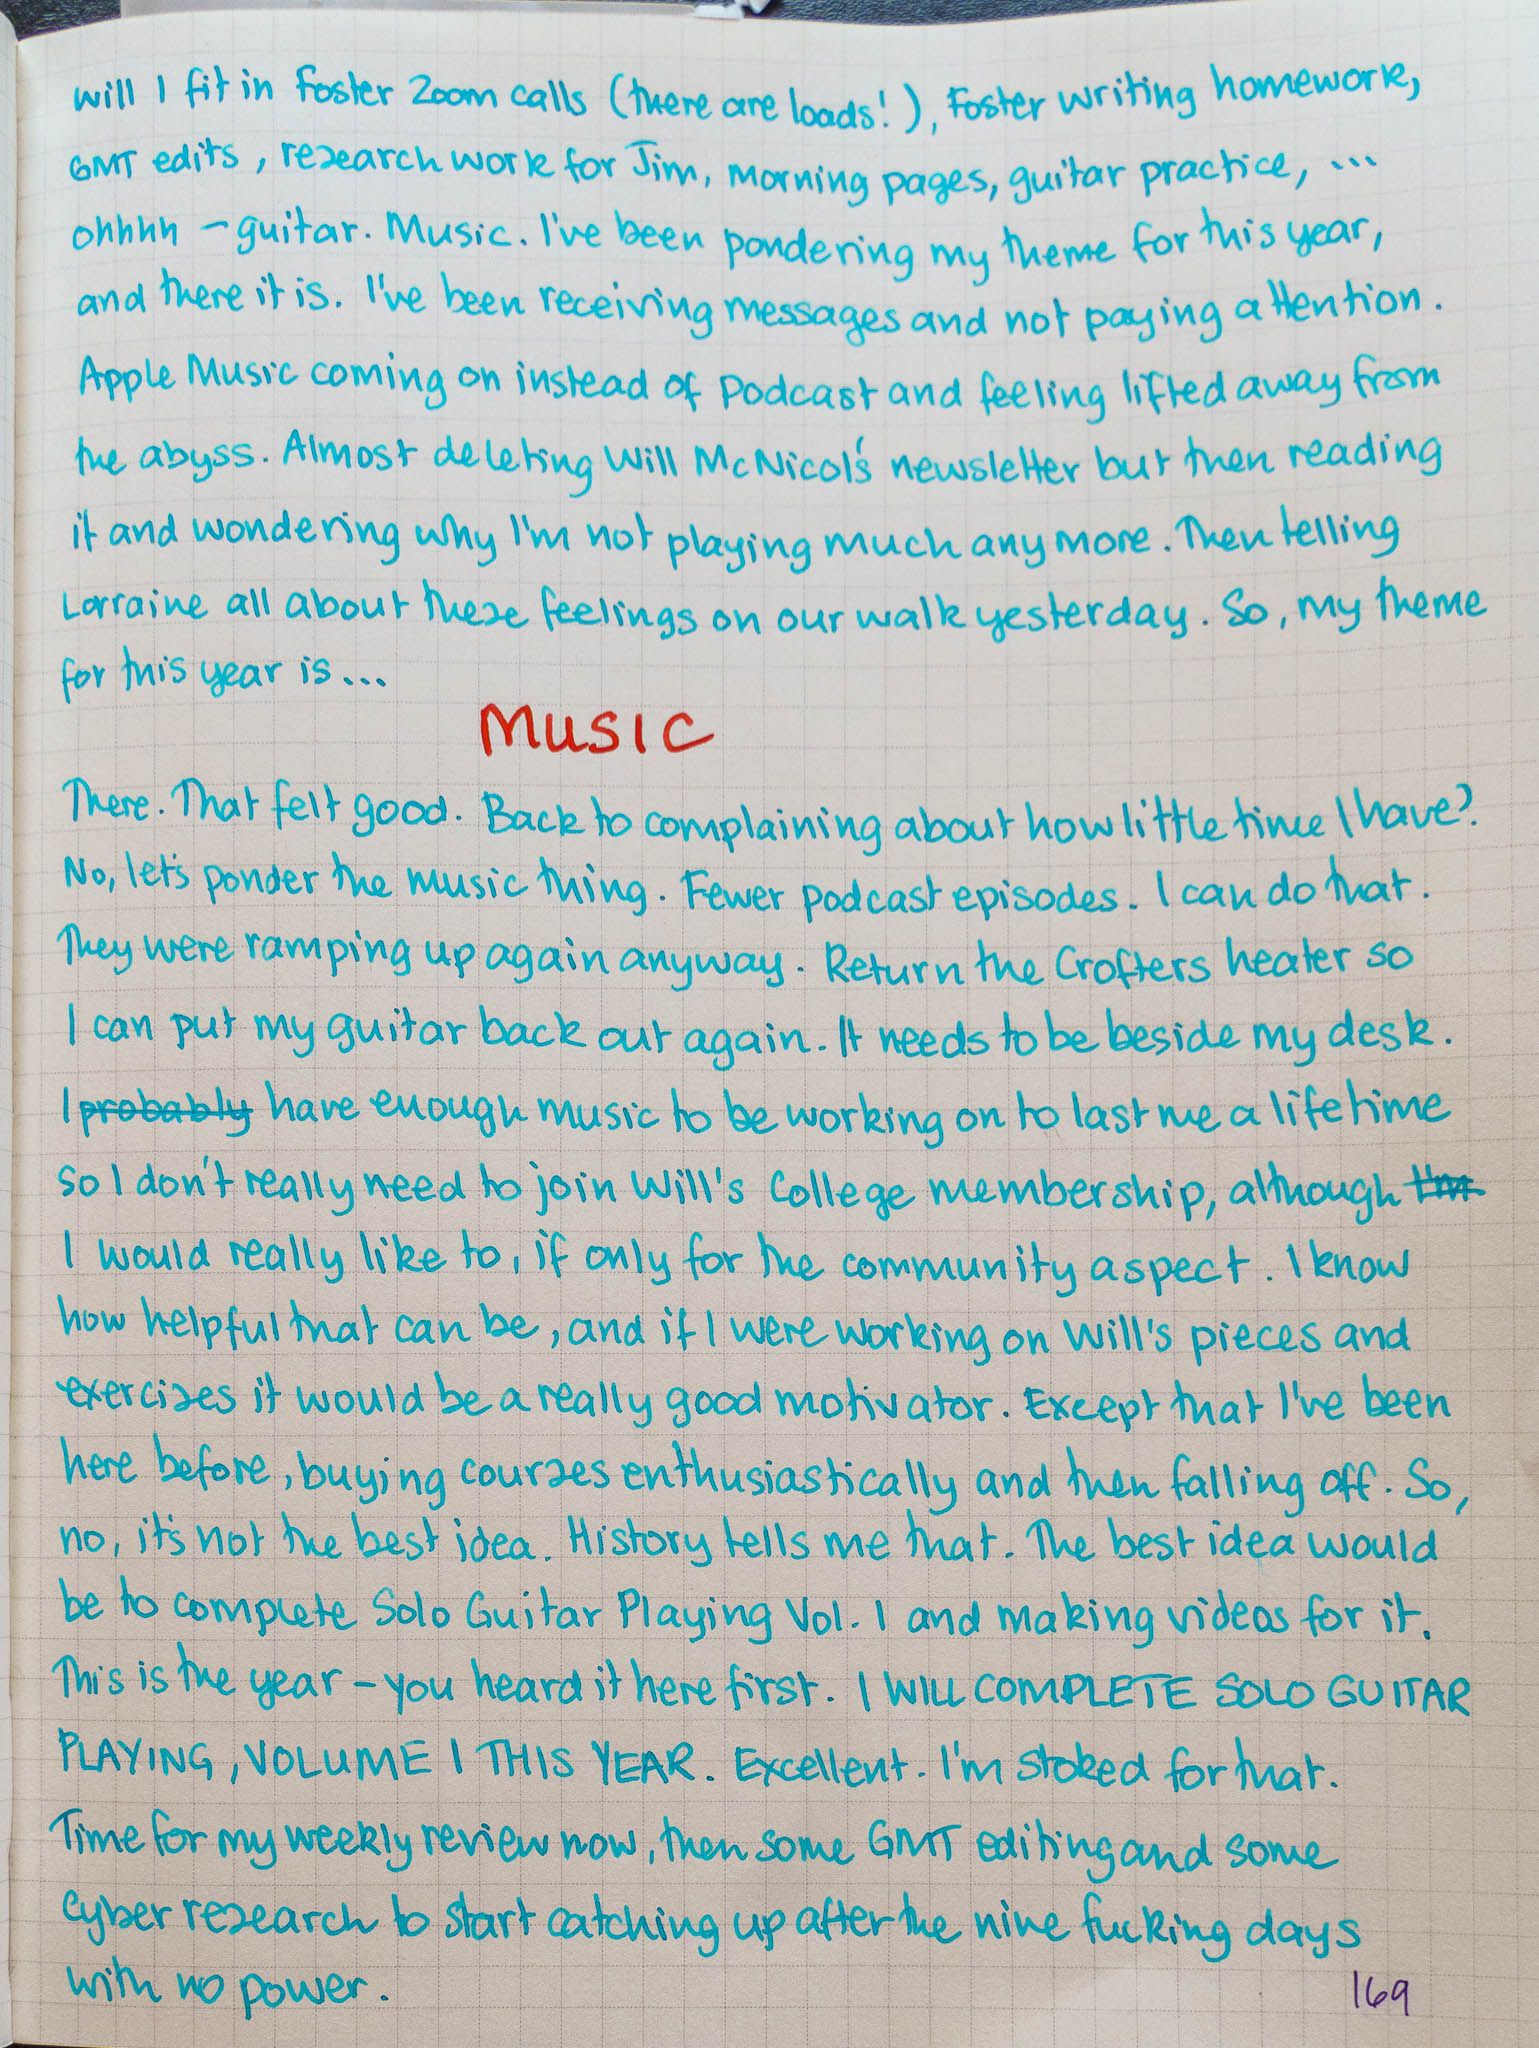 will I fit in Foster Zoom calls (there are loads!), Foster writing homework,
GMT edits, research work for Jim, morning pages, guitar practice, ...
ohhhh – guitar. Music. I've been pondering my theme for this year,
and there it is. I've been receiving messages and not paying attention.
Apple Music coming on instead of Podcast and feeling lifted away from
the abyss. Almost deleting Will McNicol's newsletter but then reading
it and wondering why I'm not playing much anymore. Then telling
Lorraine all about these feelings on our walk yesterday. So, my theme
for this year is...
MUSIC
There. That felt good. Back to complaining about how little time I have?
No, let's ponder the music thing. Fewer podcast episodes. I can do that.
They were ramping up again anyway. Return the Crofters heater so
I can put my guitar back out again. It needs to be beside my desk.
I probably have enough music to be working on to last me a lifetime
so I don't really need to join Will's College membership, although I'm
I would really like to, if only for the community aspect. I know
how helpful that can be, and if I were working on Will's pieces and
exercises it would be a really good motivator. Except that I've been
here before, buying courses enthusiastically and then falling off. So,
no, it's not the best idea. History tells me that. The best idea would
be to complete Solo Guitar Playing Vol. 1 and making videos for it.
This is the year – you heard it here first. I WILL COMPLETE SOLO GUITAR
PLAYING, VOLUME 1 THIS YEAR. Excellent. I'm stoked for that.
Time for my weekly review now, then some GMT editing and some
cyber research to start catching up after the nine fucking days
with no power.
169